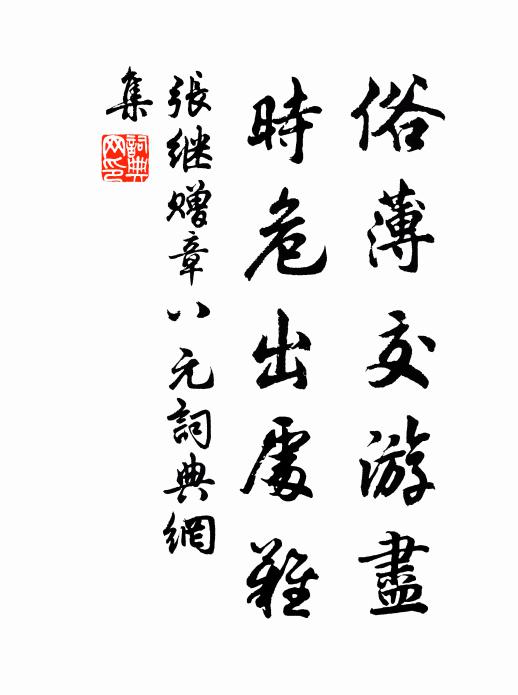 俗薄交游盡
時危出處難
張继赠章八元詞典網
集
詞典網印